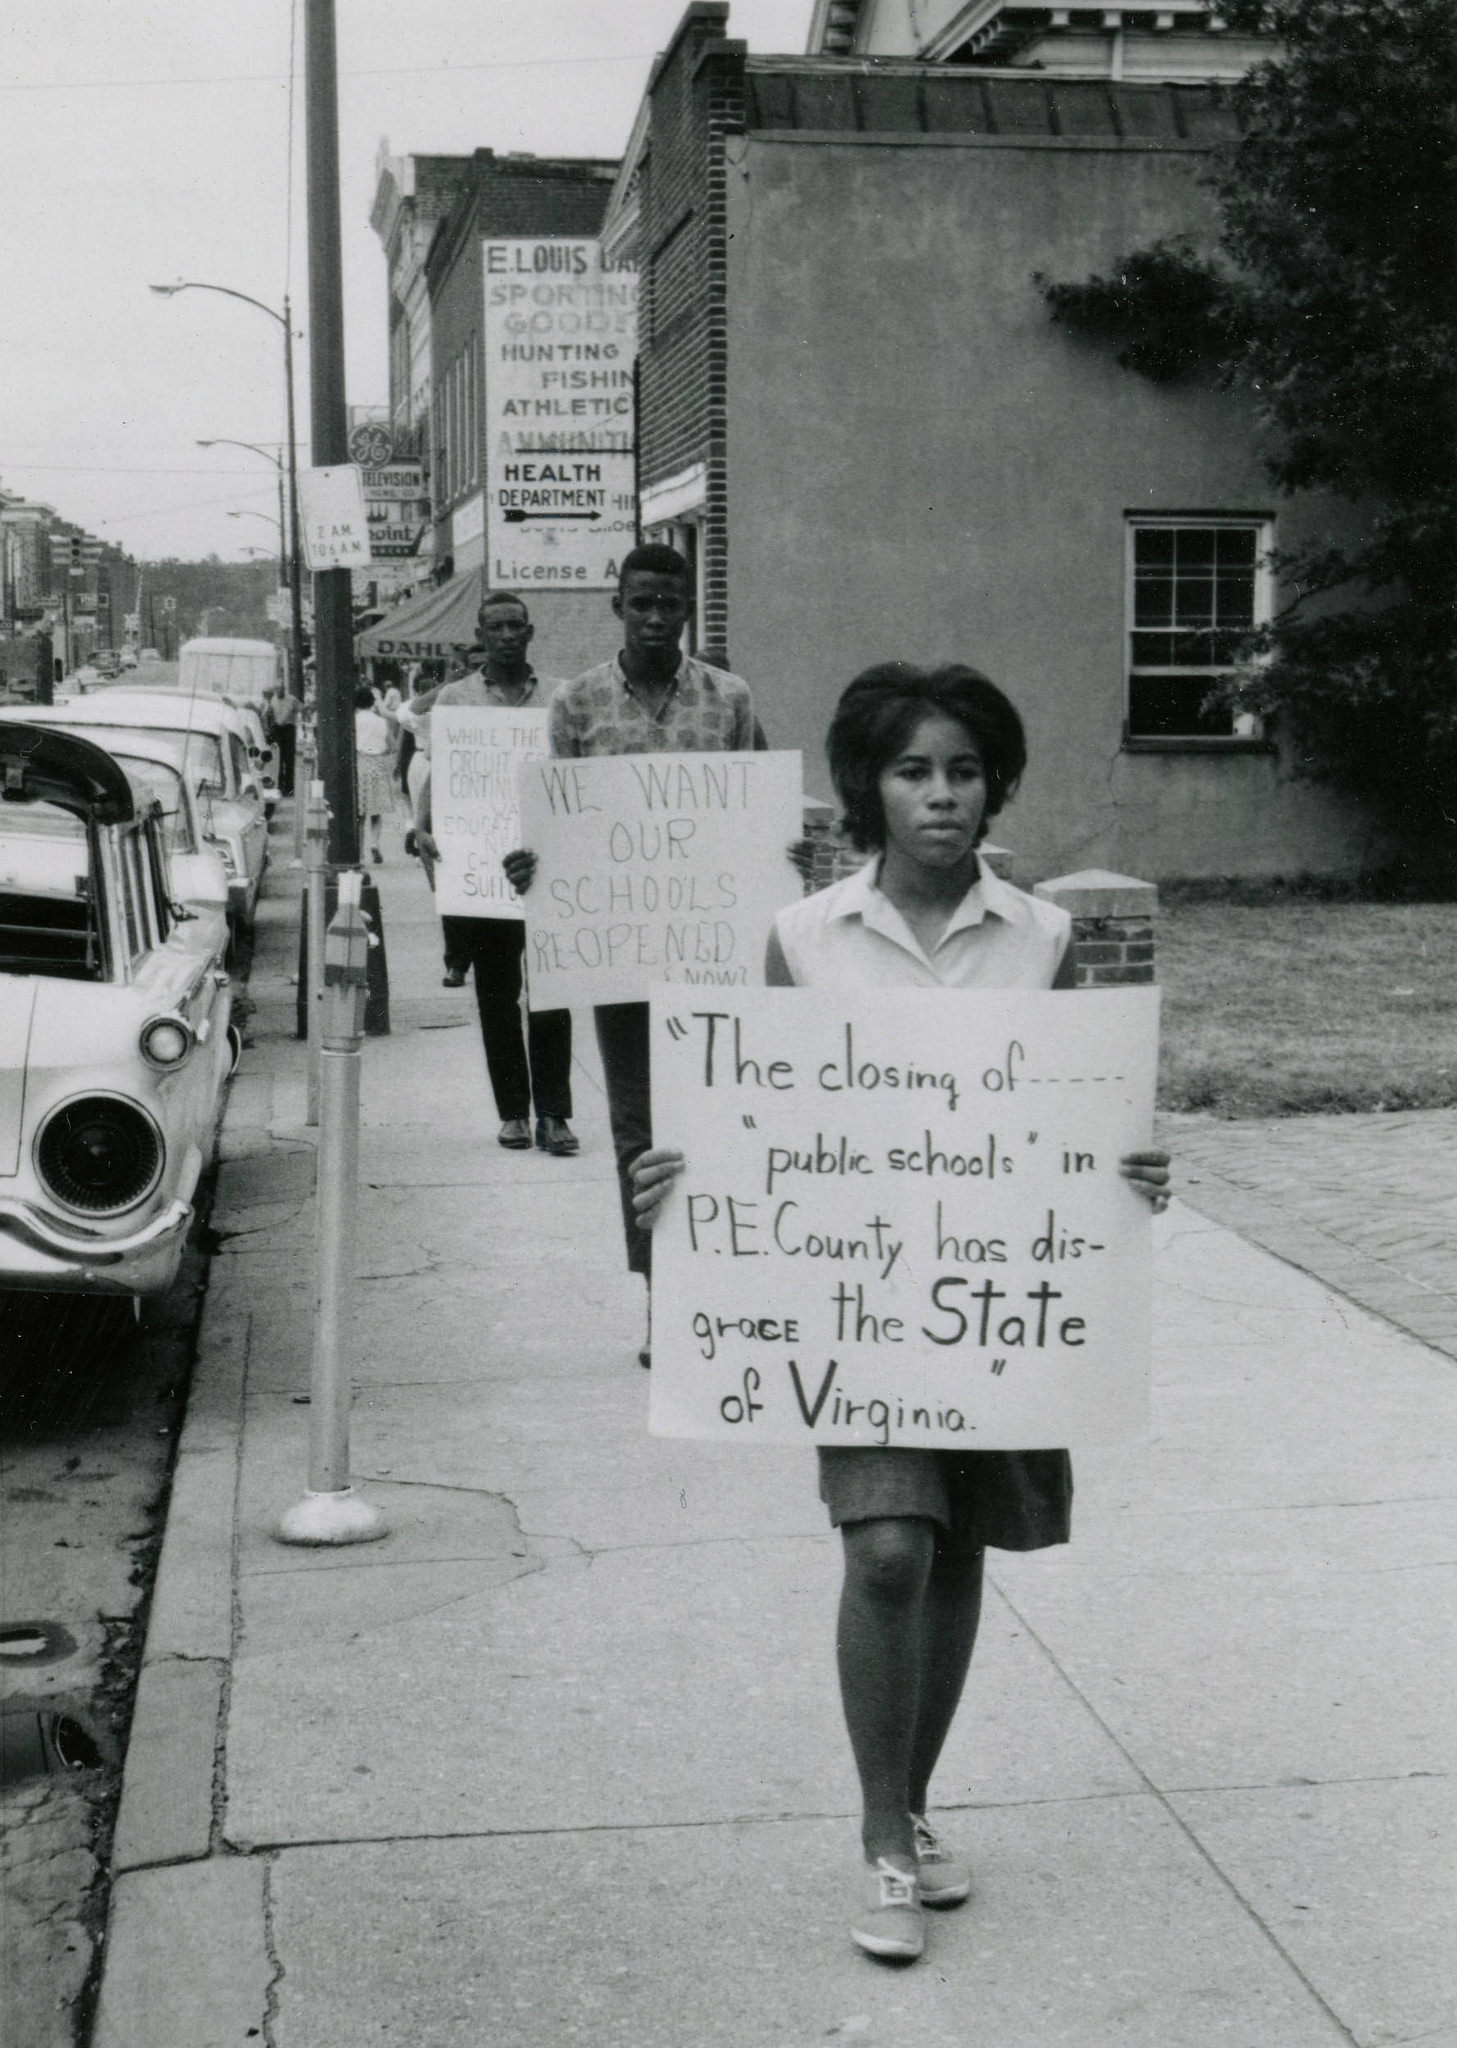 E. LOUIS
SPORTING
GOODS
HUNTING
FISHIN
ATHLETIC
AMMUNITI
HEALTH
DEPARTMENT
License A
GE
TELEVISION
2 A.M.
TO 6 A.M.
oint
DAHL'S
WHILE THE
CIRCUIT
CONTIN
EDUCAT
SUFF
WE WANT
OUR
SCHOOLS
RE-OPENED
NOW
"The closing of -----
"public schools" in
P.E. County has dis-
grace the State
of Virginia."